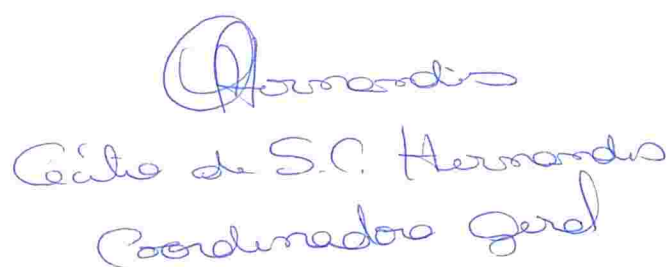 CHernandes
Cecília de S.C. Hernandes
Coordenadora Geral